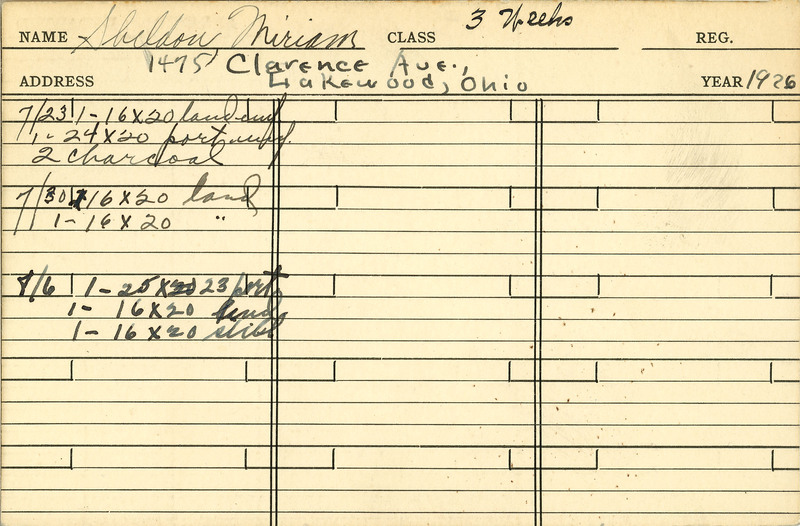 NAME Sheldon Miriam CLASS 3 Weeks REG.
ADDRESS 1475 Clarence Ave.,
Lakewood, Ohio YEAR 1926
7/23 1- 16X20 land unf
1- 24X20 port unf.
2 charcoal
7/30 1 16X20 land
1- 16X20 "
8/6 1- 25X20 23 port
1- 16X20 land
1- 16X20 still